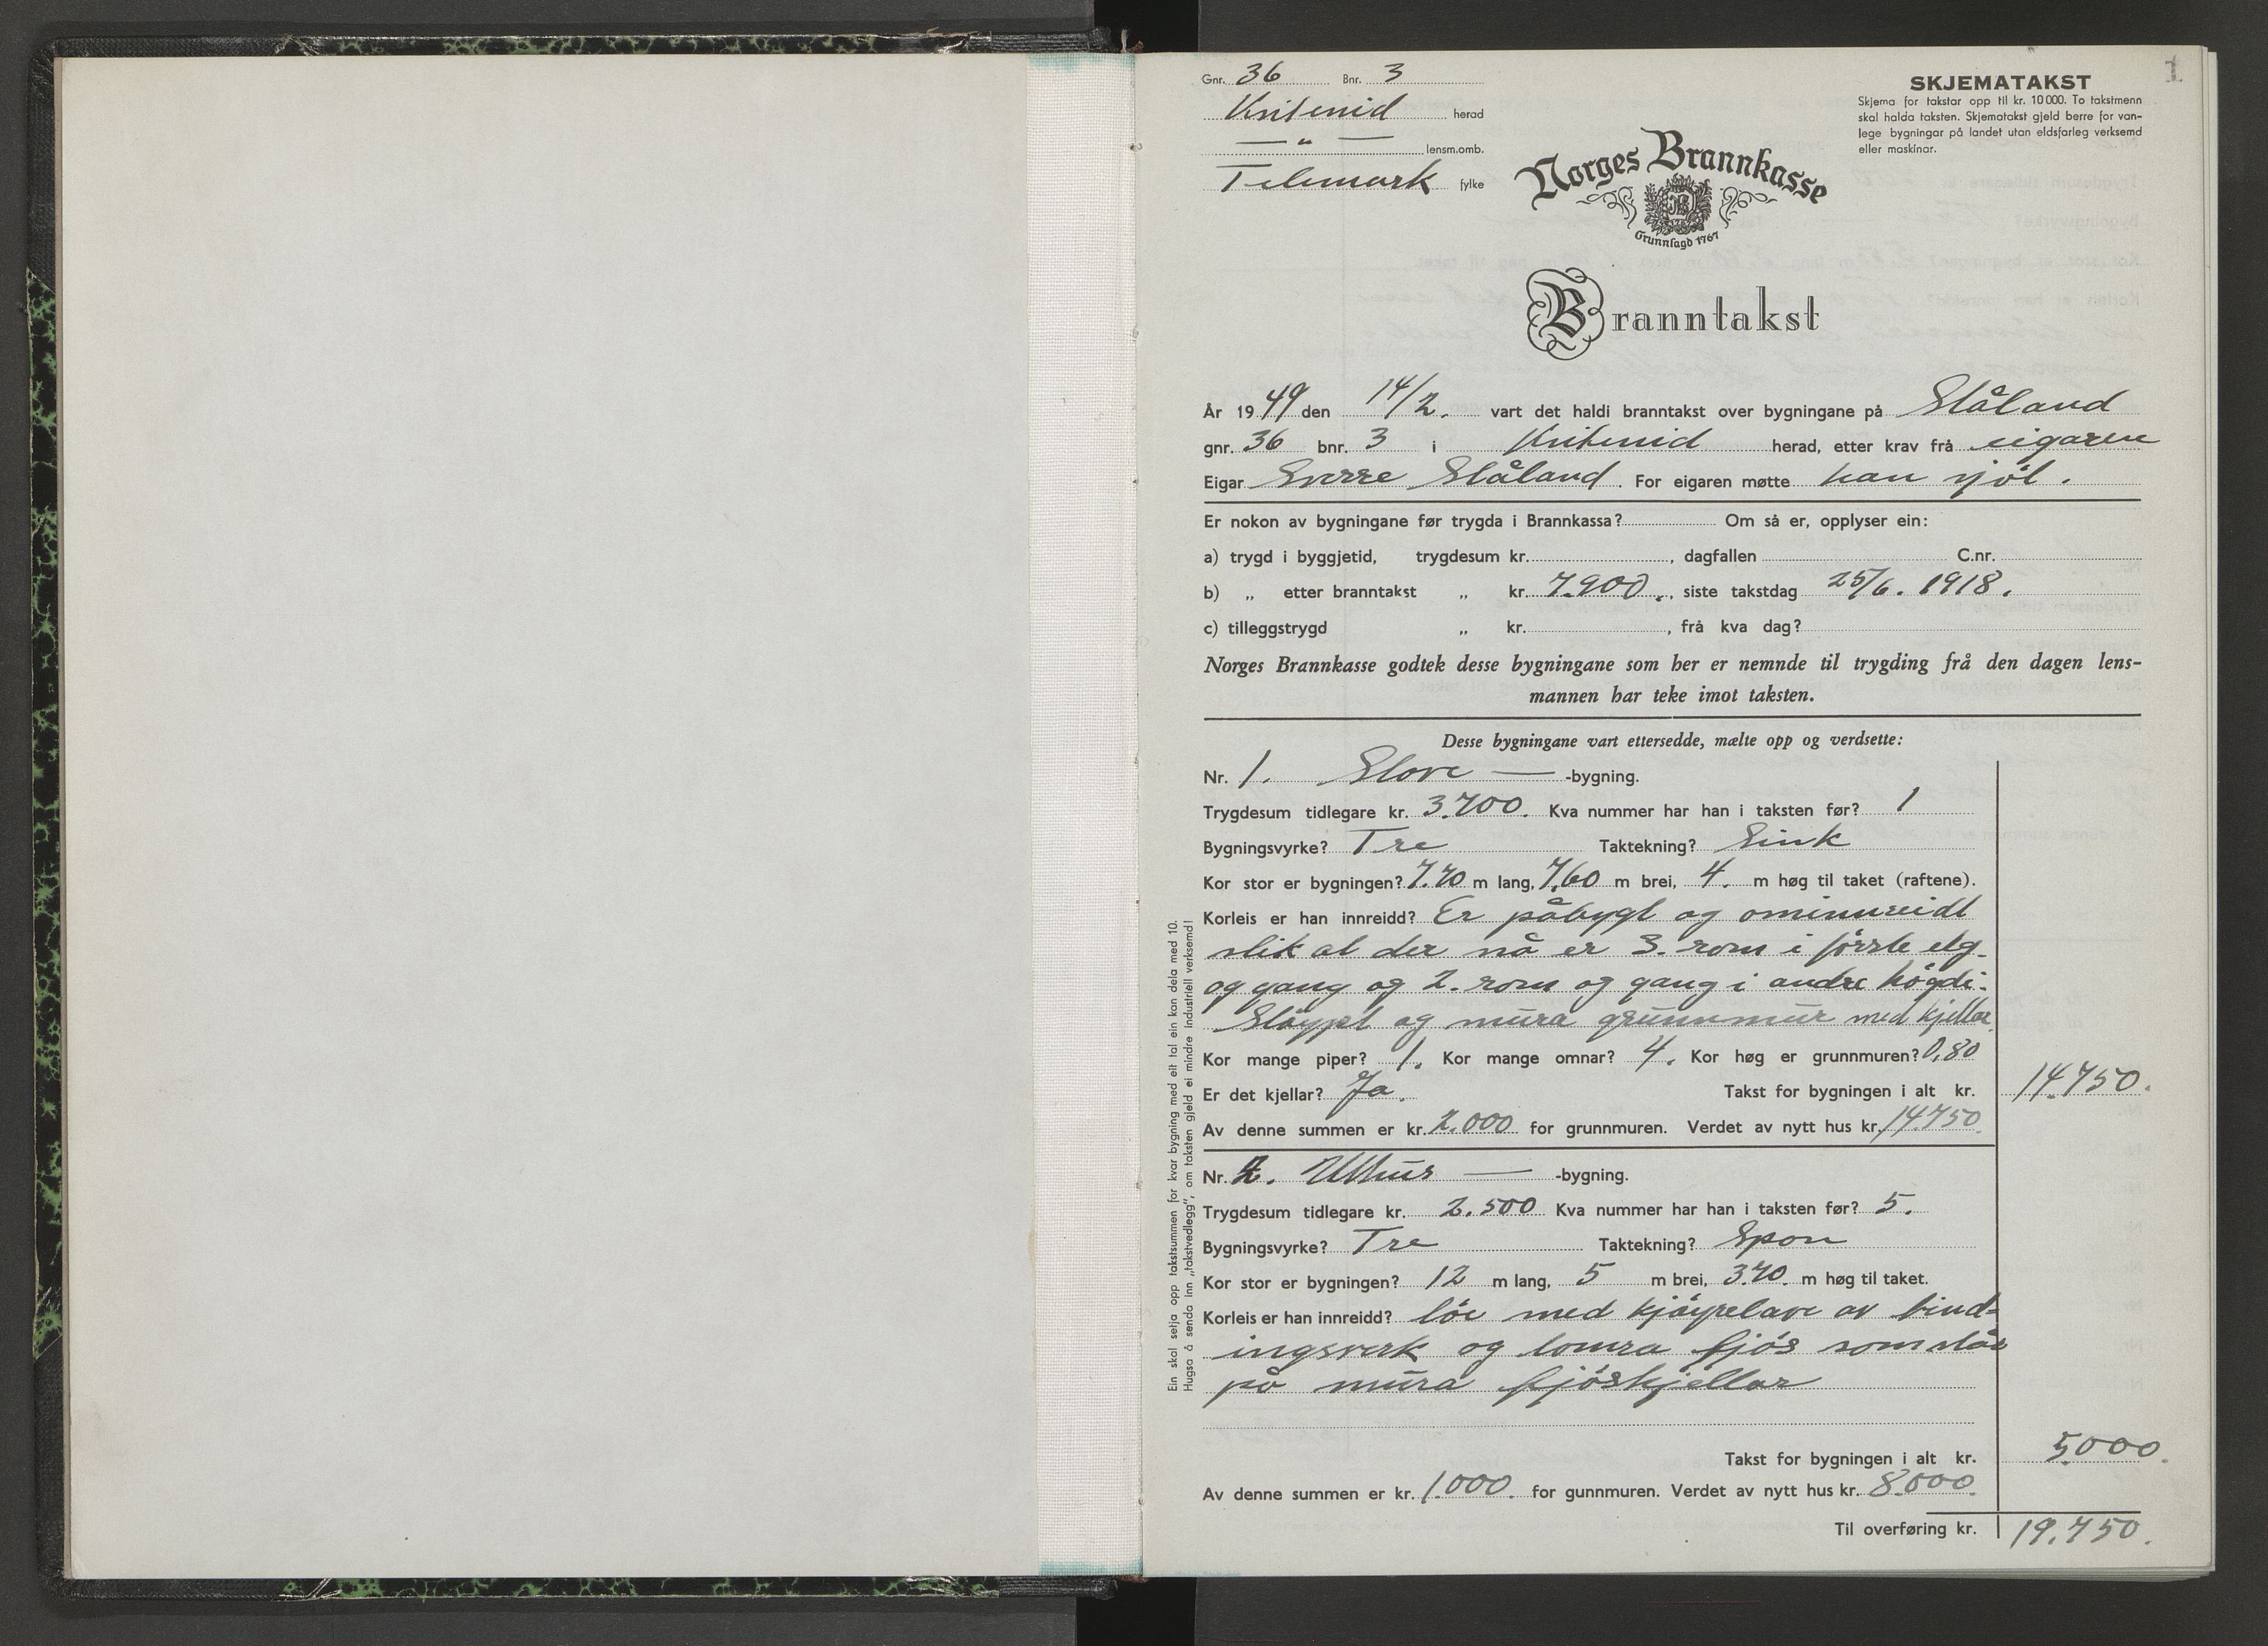 1
Gnr. 36 Bnr. 3
Kviteseid herad
— „ — lensm.omb.
Telemark fylke
SKJEMATAKST
Skjema for takstar opp til kr. 10 000. To takstmenn
skal halda taksten. Skjematakst gjeld berre for van-
lege bygningar på landet utan eldsfarleg verksemd
eller maskinar.
Norges Brannkasse
Grunnlagd 1767
Branntakst
År 1949 den 14/2. vart det haldi branntakst over bygningane på Ståland
gnr. 36 bnr. 3 i Kviteseid herad, etter krav frå eigaren
Eigar Sverre Ståland. For eigaren møtte han sjøl.
Er nokon av bygningane før trygda i Brannkassa? Om så er, opplyser ein:
a) trygd i byggjetid, trygdesum kr. , dagfallen C.nr.
b) „ etter branntakst „ kr. 7.900., siste takstdag 25/6. 1918.
c) tilleggstrygd „ kr. , frå kva dag?
Norges Brannkasse godtek desse bygningane som her er nemnde til trygding frå den dagen lens-
mannen har teke imot taksten.
Desse bygningane vart ettersedde, mælte opp og verdsette:
Nr. 1. Stove — -bygning.
Trygdesum tidlegare kr. 3.700. Kva nummer har han i taksten før? 1
Bygningsvyrke? Tre Taktekning? Sink
Kor stor er bygningen? 7.70 m lang, 7.60 m brei, 4. m høg til taket (raftene).
Korleis er han innreidd? Er påbygt og ominnreidt
slik at der nå er 3. rom i første etg.
og gang og 2. rom og gang i andre høgdi.
Støypt og mura grunnmur med kjellar.
Kor mange piper? 1. Kor mange omnar? 4. Kor høg er grunnmuren? 0,80
Er det kjellar? Ja. Takst for bygningen i alt kr. 14.750.
Av denne summen er kr. 2.000 for grunnmuren. Verdet av nytt hus kr. 14.750.
Nr. 2. Uthus — -bygning.
Trygdesum tidlegare kr. 2.500 Kva nummer har han i taksten før? 5.
Bygningsvyrke? Tre Taktekning? Spon
Kor stor er bygningen? 12 m lang, 5 m brei, 3.70. m høg til taket.
Korleis er han innreidd? löe med kjøyrelave av bind-
ingsverk og tomra fjös som står
på mura fjöskjellar
Takst for bygningen i alt kr. 5.000.
Av denne summen er kr. 1.000. for gunnmuren. Verdet av nytt hus kr. 8.000.
Til overføring kr. 19.750.
Ein skal setja opp takstsummen for kvar bygning med eit tal ein kan dela med 10.
Hugsa å senda inn „takstvedlegg”, om taksten gjeld ei mindre industriell verksemd!